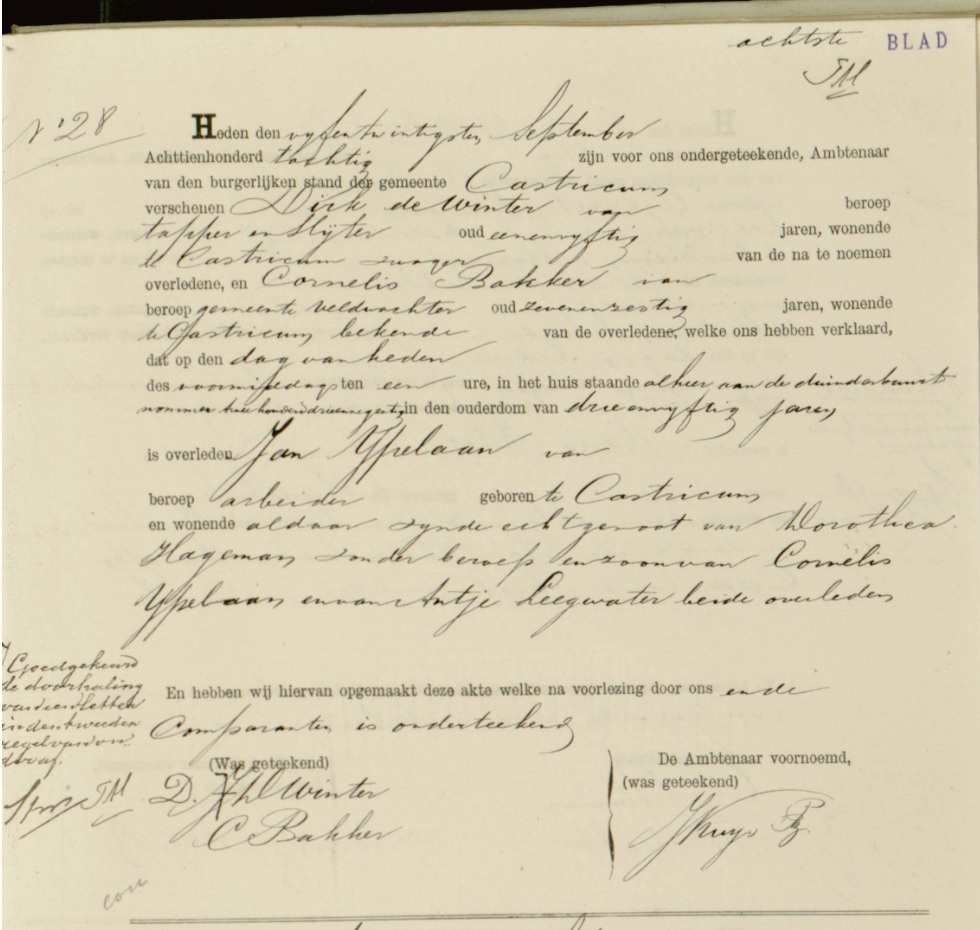 achtste BLAD
No 28
Heden den vyfentwintigsten September
Achttienhonderd tachtig zijn voor ons ondergeteekende, Ambtenaar
van den burgerlijken stand der gemeente Castricum
verschenen Dirk de Winter van beroep
tapper en slyter oud eenenvyftig jaren, wonende
te Castricum zwager van de na te noemen
overledene, en Cornelis Bakker van
beroep gemeente veldwachter oud zevenenzestig jaren, wonende
te Castricum bekende van de overledene, welke ons hebben verklaard,
dat op den dag van heden
des voormiddags ten een ure, in het huis staande alhier aan de duinderbuurt
nommer tweehonderddrieennegentig in den ouderdom van drieenvyftig jaren
is overleden Jan Ypelaan van
beroep arbeider geboren te Castricum
en wonende aldaar zynde echtgenoot van Dorothea
Hageman zonder beroep en zoon van Cornelis
Ypelaan en van Antje Leegwater beide overleden
Goedgekeurd
de doorhaling
van een letter
in den tweeden
regel van on-
deraf.
En hebben wij hiervan opgemaakt deze akte welke na voorlezing door ons en de
Comparanten is onderteekend
(Was geteekend) De Ambtenaar voornoemd,
(was geteekend)
D. de Winter
C Bakker
J Kuys Pz